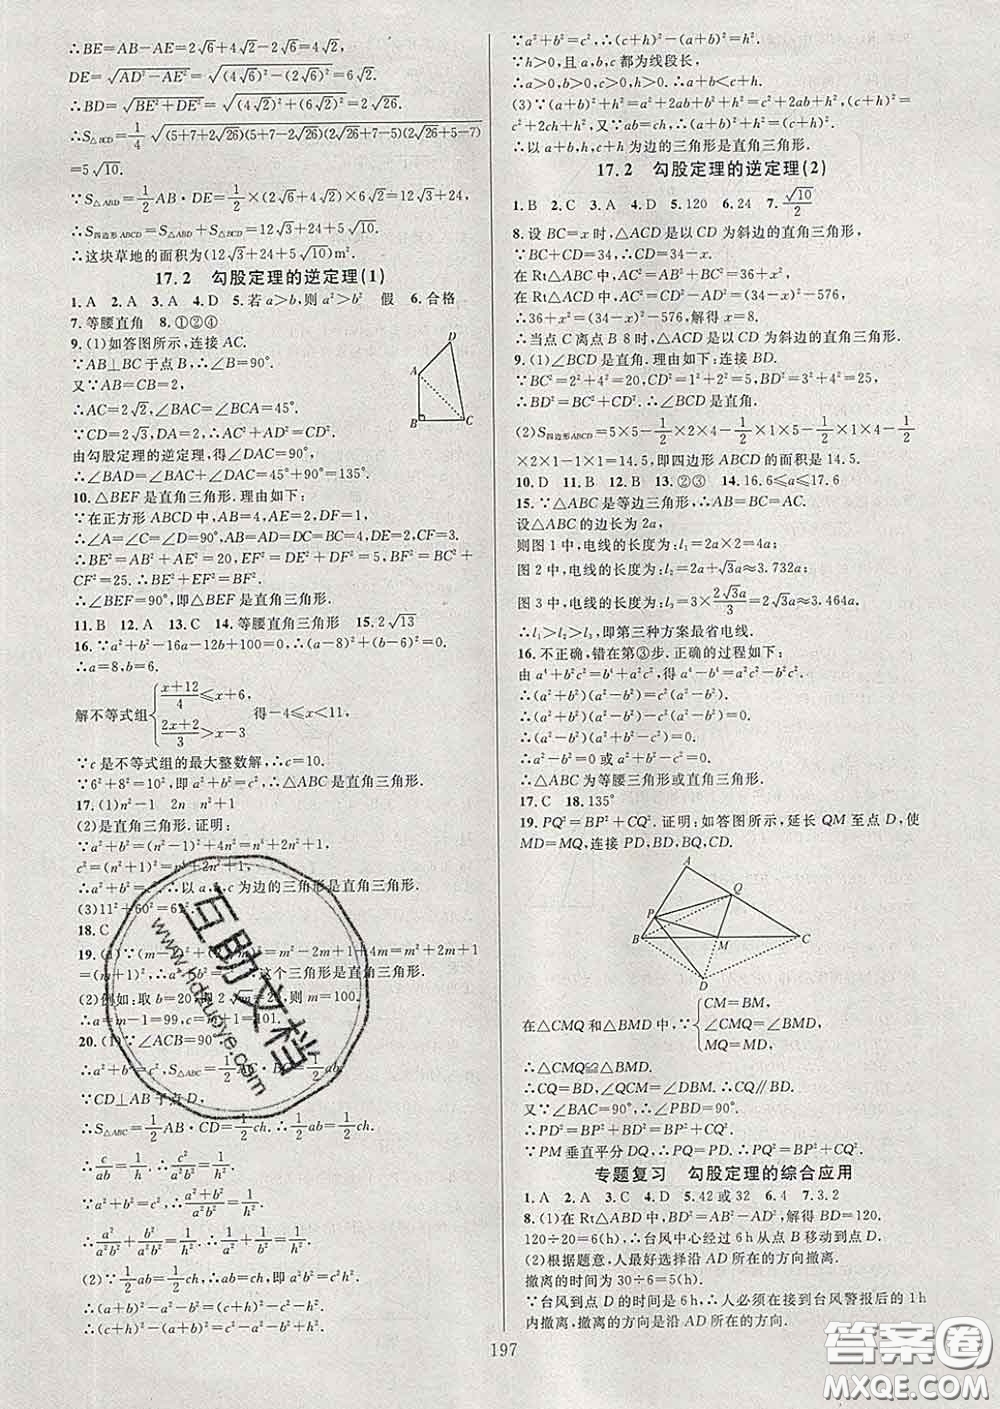 ∴BE=AB−AE=2√6+4√2−2√6=4√2.
DE=√(AD²−AE²)=√((4√6)²−(2√6)²)=6√2.
∴BD=√(BE²+DE²)=√((4√2)²+(6√2)²)=2√26.
∴S△DBC=1/4 √((5+7+2√26)(5+7−2√26)(2√26+7−5)(2√26+5−7))
=5√10.
∵S△ABD=1/2 AB·DE=1/2×(2√6+4√2)×6√2=12√3+24,
∴S四边形ABCD=S△ABD+S△BCD=12√3+24+5√10.
∴这块草地的面积为(12√3+24+5√10)m².
17.2 勾股定理的逆定理(1)
1.A 2.A 3.A 4.D 5.若a>b,则a²>b² 假 6.合格
7.等腰直角 8.①②④
9.(1)如答图所示,连接AC.
∵AB⊥BC于点B,∴∠B=90°.
又∵AB=CB=2,
∴AC=2√2,∠BAC=∠BCA=45°.
∵CD=2√3,DA=2,
∴CD²=12,DA²=4,AC²=8.
∴AC²+DA²=CD².
由勾股定理的逆定理,得∠DAC=90°,
∴∠BAD=∠BAC+∠DAC=45°+90°=135°.
D
A
B
C
10.△BEF是直角三角形.理由如下:
∵在正方形ABCD中,AB=4,AE=2,DF=1,
∴∠A=∠C=∠D=90°,AB=AD=DC=BC=4,DE=2,CF=3.
∴BE²=AB²+AE²=20,EF²=DE²+DF²=5,BF²=BC²+
CF²=25.∴BE²+EF²=BF².
∴∠BEF=90°,即△BEF是直角三角形.
11.B 12.A 13.C 14.等腰直角三角形 15.2√13
16.∵a²+b²−16a−12b+100=0,∴(a−8)²+(b−6)²=0.
∴a=8,b=6.
解不等式组{(x+12)/4≤x+6, (2x+2)/3>x−3 得−4≤x<11,
∵c是不等式组的最大整数解,∴c=10.
∵6²+8²=10²,即a²+b²=c²,∴△ABC是直角三角形.
17.(1)n²−1 2n n²+1
(2)是直角三角形.证明:
∵a²+b²=(n²−1)²+4n²=n⁴+2n²+1,
c²=(n²+1)²=n⁴+2n²+1,
∴a²+b²=c².∴以a,b,c为边的三角形是直角三角形.
(3)11²+60²=61².
18.C
19.(1)∵(m−1)²+(2√m)²=m²−2m+1+4m=m²+2m+1
=(m+1)²,∴a²+b²=c².∴这个三角形是直角三角形.
(2)例如:取b=20,则2√m=20,则m=100.
∴a=m−1=99,c=m+1=101.
20.(1)∵∠ACB=90°,
∴a²+b²=c²,S△ABC=1/2 AC·BC=1/2 ab.
∵CD⊥AB于点D,
∴S△ABC=1/2 AB·CD=1/2 ch.∴1/2 ab=1/2 ch.
∴c/ab=1/h.∴c²/(a²b²)=1/h².∴(a²+b²)/(a²b²)=1/h².
∴a²/(a²b²)+b²/(a²b²)=1/h².∴1/a²+1/b²=1/h².
(2)∵1/2 ab=1/2 ch,∴ab=ch,即a²b²=c²h².
∴(a+b)²−a²−b²=(c+h)²−c²−h².
∴(c+h)²−(a+b)²=c²+h²−(a²+b²).
∵a²+b²=c²,∴(c+h)²−(a+b)²=h².
∵h>0,且a,b,c都为线段长,
∴a>0,b>0,c>0,h>0.∴a+b<c+h.
(3)∵(a+b)²+h²=a²+2ab+b²+h²=c²+2ab+h²,(c+h)²=
c²+2ch+h²,又∵ab=ch,∴(a+b)²+h²=(c+h)².
∴以a+b,h,c+h为边的三角形是直角三角形.
17.2 勾股定理的逆定理(2)
1.B 2.C 3.A 4.D 5.120 6.24 7.√10/2
8.设BC=x时,△ACD是以CD为斜边的直角三角形,
∵BC+CD=34,∴CD=34−x.
在Rt△ABC中,AC²=AB²+BC²=36+x²,
在Rt△ACD中,AC²=CD²−AD²=(34−x)²−576,
∴36+x²=(34−x)²−576,解得x=8.
∴当点C离点B 8时,△ACD是以CD为斜边的直角三角形.
9.(1)∠BCD是直角.理由如下:连接BD.
∵BC²=2²+4²=20,CD²=1²+2²=5,BD²=3²+4²=25,
∴BD²=BC²+CD².∴∠BCD是直角.
(2)S四边形ABCD=5×5−1/2×2×4−1/2×1×5−1/2×1×4−1/2
×2×1−1×1=14.5,即四边形ABCD的面积是14.5.
10.D 11.B 12.B 13.②③ 14.16.6≤a≤17.6
15.∵△ABC是等边三角形,∴AB=BC=AC.
设△ABC的边长为2a,
则图1中,电线的长度为:l₁=2a×2=4a;
图2中,电线的长度为:l₂=2a+√3a≈3.732a;
图3中,电线的长度为:l₃=3×2√3a/3=2√3a≈3.464a,
∴l₁>l₂>l₃,即第三种方案最省电线.
16.不正确,错在第③步.正确的过程如下:
由a⁴+b²c²=b⁴+a²c²,得a⁴−b⁴=a²c²−b²c².
∴(a²+b²)(a²−b²)=c²(a²−b²).
∴(a²+b²)(a²−b²)−c²(a²−b²)=0.
∴(a²−b²)(a²+b²−c²)=0.
∴a²−b²=0或a²+b²−c²=0.
∴△ABC为等腰三角形或直角三角形.
17.C 18.135°
19.PQ²=BP²+CQ².证明:如答图所示,延长QM至点D,使
MD=MQ,连接PD,BD,BQ,CD.
A
Q
P
B
M
C
D
在△CMQ和△BMD中,∵{CM=BM, ∠CMQ=∠BMD, MQ=MD,
∴△CMQ≌△BMD.
∴CQ=BD,∠QCM=∠DBM.∴CQ∥BD.
又∵∠BAC=90°,∴∠PBD=90°.
∴DP²=BP²+BD²=BP²+CQ².
∵PM垂直平分DQ,∴PQ=PD.∴PQ²=BP²+CQ².
专题复习 勾股定理的综合应用
1.A 2.A 3.C 4.D 5.42或32 6.4 7.3.2
8.(1)在Rt△ABD中,BD²=AB²−AD²,解得BD=120.
120÷20=6(h).∴台风中心经过6h从点B移动到点D.
(2)根据题意,人最好选择沿AD所在的方向撤离.
撤离的时间为30÷6=5(h).
∵台风到点D的时间是6h,∴人必须在接到台风警报后的1h
内撤离,撤离的方向是沿AD所在的方向.
197
互助文档
www.hdzuoye.com
答案圈
MXQE.COM